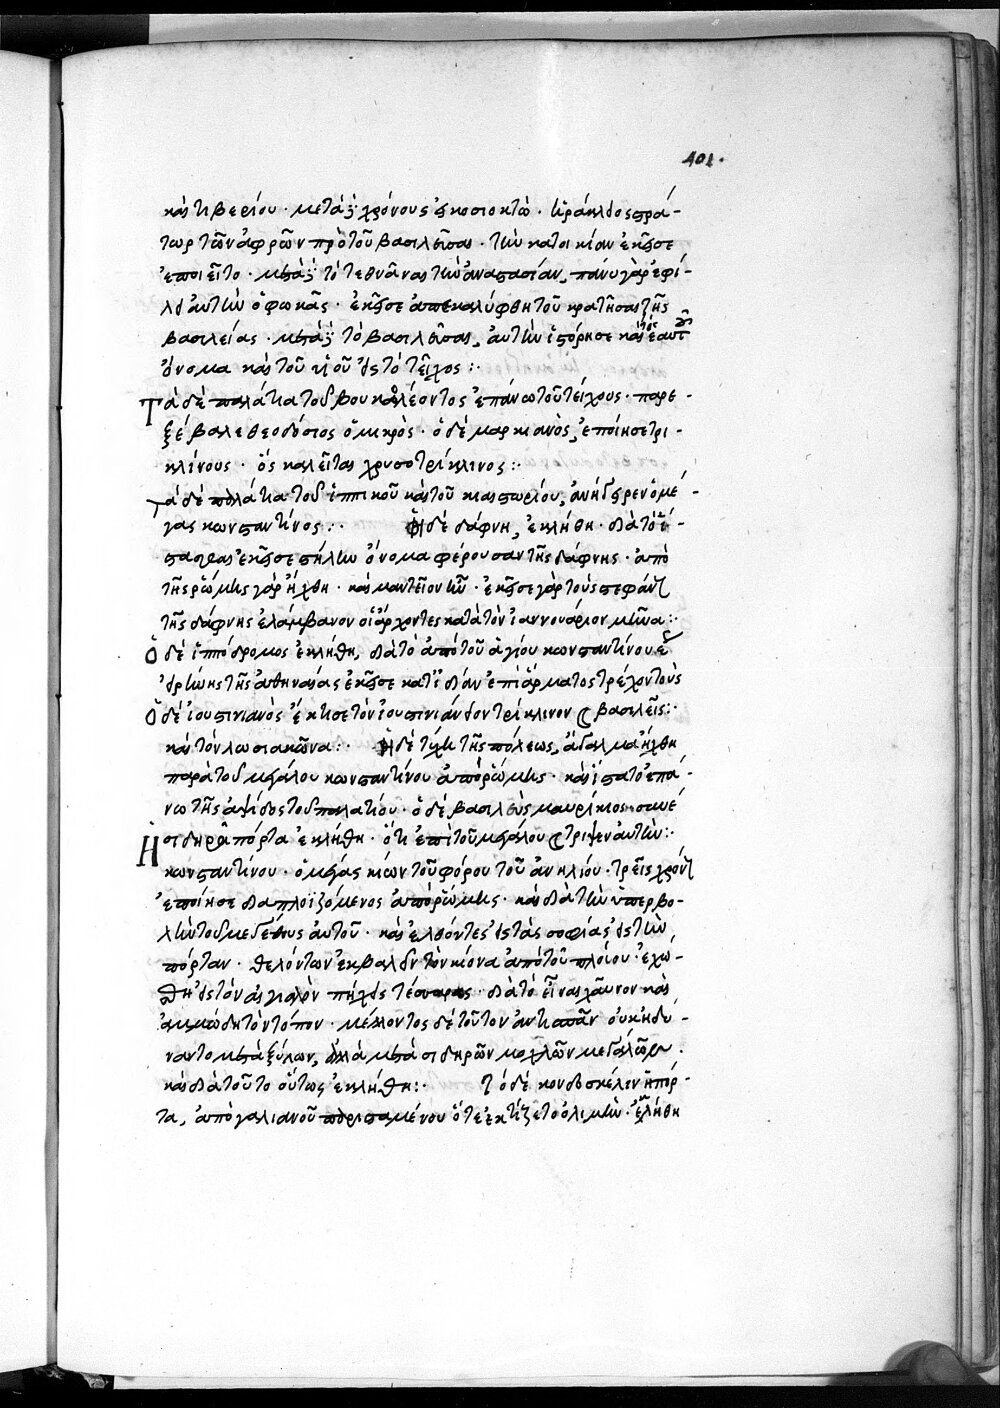 401.
καὶ τιβερίου · μετὰ δὲ χρόνους εἰκοσιοκτὼ · ἡράκλειος πρά-
τωρ τῶν ἄφρων πρὸ τοῦ βασιλεῦσαι · τὴν κατοικίαν ἐκεῖσε
ἐποιεῖτο · μετὰ δὲ τὸ τεθνᾶναι τὴν ἀναστασίαν, πάνυ γὰρ ἐφί-
λει αὐτὴν ὁ φωκᾶς · ἐκεῖσε ἀπεκαλύφθη τοῦ κρατῆσαι τῆς
βασιλείας · μετὰ δὲ τὸ βασιλεῦσαι, αὐτὴν ἱστόρησε καὶ τὸ ἑαυτοῦ
ὄνομα καὶ τοῦ υἱοῦ εἰς τὸ τεῖχος :·
Τὰ δὲ παλάτια τοῦ βουκολέοντος ἐπάνω τοῦ τείχους · παρε-
ξέβαλε θεοδόσιος ὁ μικρὸς · ὁ δὲ μαρκιανὸς, ἐποίησε τρι-
κλίνους · ὃς καλεῖται χρυσοτρίκλινος :·
Τὰ δὲ παλάτια τοῦ ἱππικοῦ καὶ τοῦ κιαστωρίου, ἀνήγειρεν ὁ μέ-
γας κωνσταντῖνος :· Ἡ δὲ δάφνη, ἐκλήθη · διὰ τὸ ἵ-
στασθαι ἐκεῖσε στήλην ὄνομα φέρουσαν τῆς δάφνης · ἀπὸ
τῆς ῥώμης γὰρ ἤχθη · καὶ μαντεῖον ἦν · ἐκεῖσε γὰρ τοὺς στεφάνους
τῆς δάφνης ἐλάμβανον οἱ ἄρχοντες κατὰ τὸν ἰαννουάριον μῆνα :·
Ὁ δὲ ἱππόδρομος ἐκλήθη, διὰ τὸ ἀπὸ τοῦ ἁγίου κωνσταντίνου ἐξ
εἰρήνης τῆς ἀθηναίας ἐκεῖσε κατ' ἰδίαν ἐπὶ ἅρματος τρέχοντος
Ὁ δὲ ἰουστινιανὸς ἔκτισε τὸν ἰουστινιάνειον τρίκλινον βασιλεῖς :·
καὶ τὸν λωσιακῶνα :· Ἡ δὲ τύχη τῆς πόλεως, ἄγαλμα ἤχθη
παρὰ τοῦ μεγάλου κωνσταντίνου ἀπὸ ῥώμης · καὶ ἵστατο ἐπά-
νω τῆς ἁψίδος τοῦ παλατίου · ὁ δὲ βασιλεὺς μαυρίκιος συνέ-
Ἡ σιδηρᾶ πόρτα ἐκλήθη · ὅτι ἐπὶ τοῦ μεγάλου τριψεν αὐτήν :·
κωνσταντίνου · ὁ μέγας κίων τοῦ φόρου τοῦ ἀνηλίου · τρεῖς χρόνους
ἐποίησε διαπλοϊζόμενος ἀπὸ ῥώμης · καὶ διὰ τὴν ὑπερβο-
λὴν τοῦ μεγέθους αὐτοῦ · καὶ ἐλθόντες εἰς τὰς σοφίας εἰς τὴν
πόρταν · θελόντων ἐκβαλεῖν τὸν κίονα ἀπὸ τοῦ πλοίου · ἐχώ-
θη εἰς τὸν αἰγιαλὸν πήχεις τέσσαρας · διὰ τὸ εἶναι χαῦνον καὶ
ἀμμώδη τὸν τόπον · μέλλοντος δὲ τοῦτον ἀντισπᾶν οὐκ ἠδύ-
ναντο μετὰ ξύλων, ἀλλὰ μετὰ σιδηρῶν μοχλῶν μεγάλων ·
καὶ διὰ τοῦτο οὕτως ἐκλήθη :· Τὸ δὲ κονδοσκέλιν ἡ πόρ-
τα, ἀπὸ γαλιανοῦ παρισταμένου ὅτε ἐκτίζετο ὁ λιμὴν · ἐκλήθη